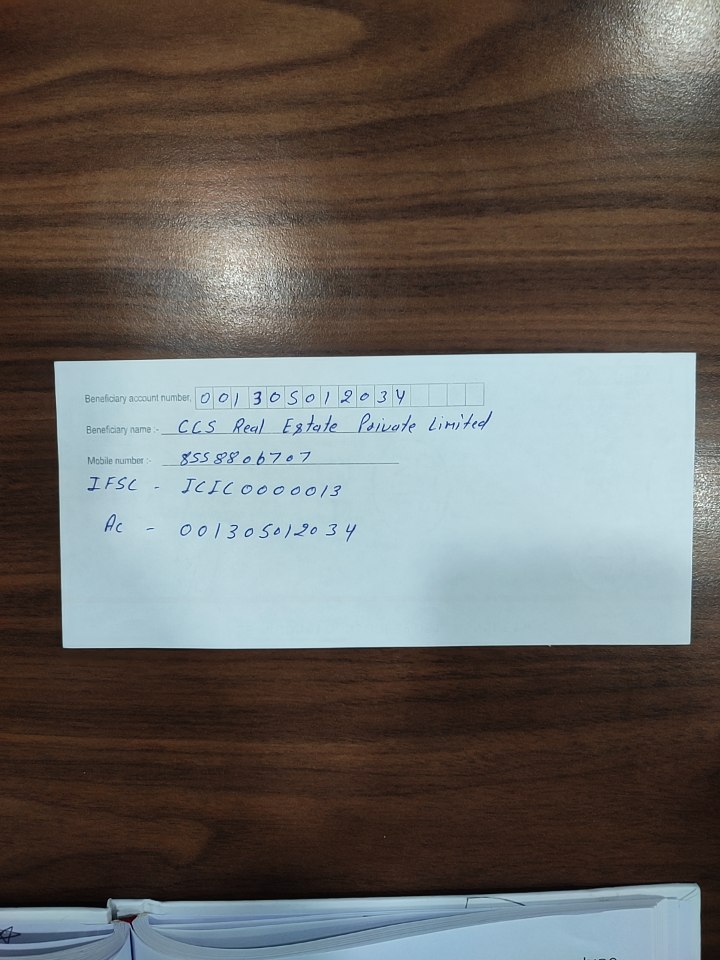 Beneficiary account number. 001305012034
Beneficiary name :- CCS Real Estate Private Limited
Mobile number :- 8558806707
IFSC - ICIC0000013
Ac - 001305012034